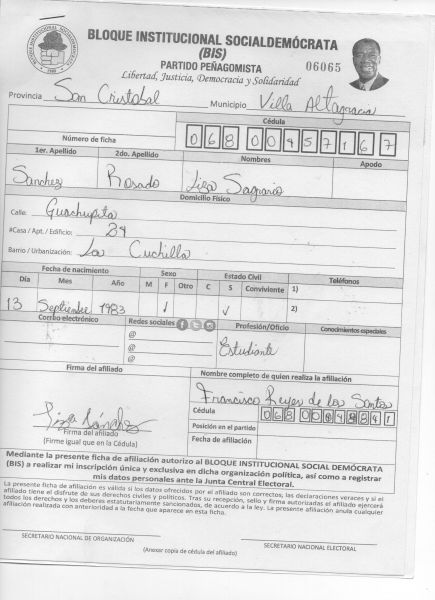 BLOQUE INSTITUCIONAL SOCIALDEMÓCRATA
(BIS)
PARTIDO PEÑAGOMISTA 06065
Libertad, Justicia, Democracia y Solidaridad
Provincia San Cristobal Municipio Villa Altagracia
Cédula
Número de ficha 068 0045716 7
1er. Apellido 2do. Apellido Nombres Apodo
Sanchez Rosado Liza Sagrario
Domicilio Físico
Calle: Guachupita
#Casa / Apt. / Edificio: 24
Barrio / Urbanización: La Cuchilla
Fecha de nacimiento Sexo Estado Civil Teléfonos
Día Mes Año M F Otro C S Conviviente 1)
13 Septiembre 1983 ✓ ✓ 2)
Correo electrónico Redes sociales Profesión/Oficio Conocimientos especiales
@
@ Estudiante
@
Firma del afiliado Nombre completo de quien realiza la afiliación
Francisco Reyes de los Santos
Cédula 068 000
Posición en el partido
Fecha de afiliación
Liza Sánchez
Firma del afiliado
(Firme igual que en la Cédula)
Mediante la presente ficha de afiliación autorizo al BLOQUE INSTITUCIONAL SOCIAL DEMÓCRATA
(BIS) a realizar mi inscripción única y exclusiva en dicha organización política, así como a registrar
mis datos personales ante la Junta Central Electoral.
La presente ficha de afiliación es válida si los datos ofrecidos por el afiliado son correctos, las declaraciones veraces y si el
afiliado tiene el disfrute de sus derechos civiles y políticos. Tras su recepción, sello y firma autorizadas el afiliado ejercerá
todos los derechos y los deberes estatutariamente sancionados, de acuerdo a la ley. La presente afiliación anula cualquier
afiliación realizada con anterioridad a la fecha que aparece en esta ficha.
SECRETARIO NACIONAL DE ORGANIZACIÓN SECRETARIO NACIONAL ELECTORAL
(Anexar copia de cédula del afiliado)